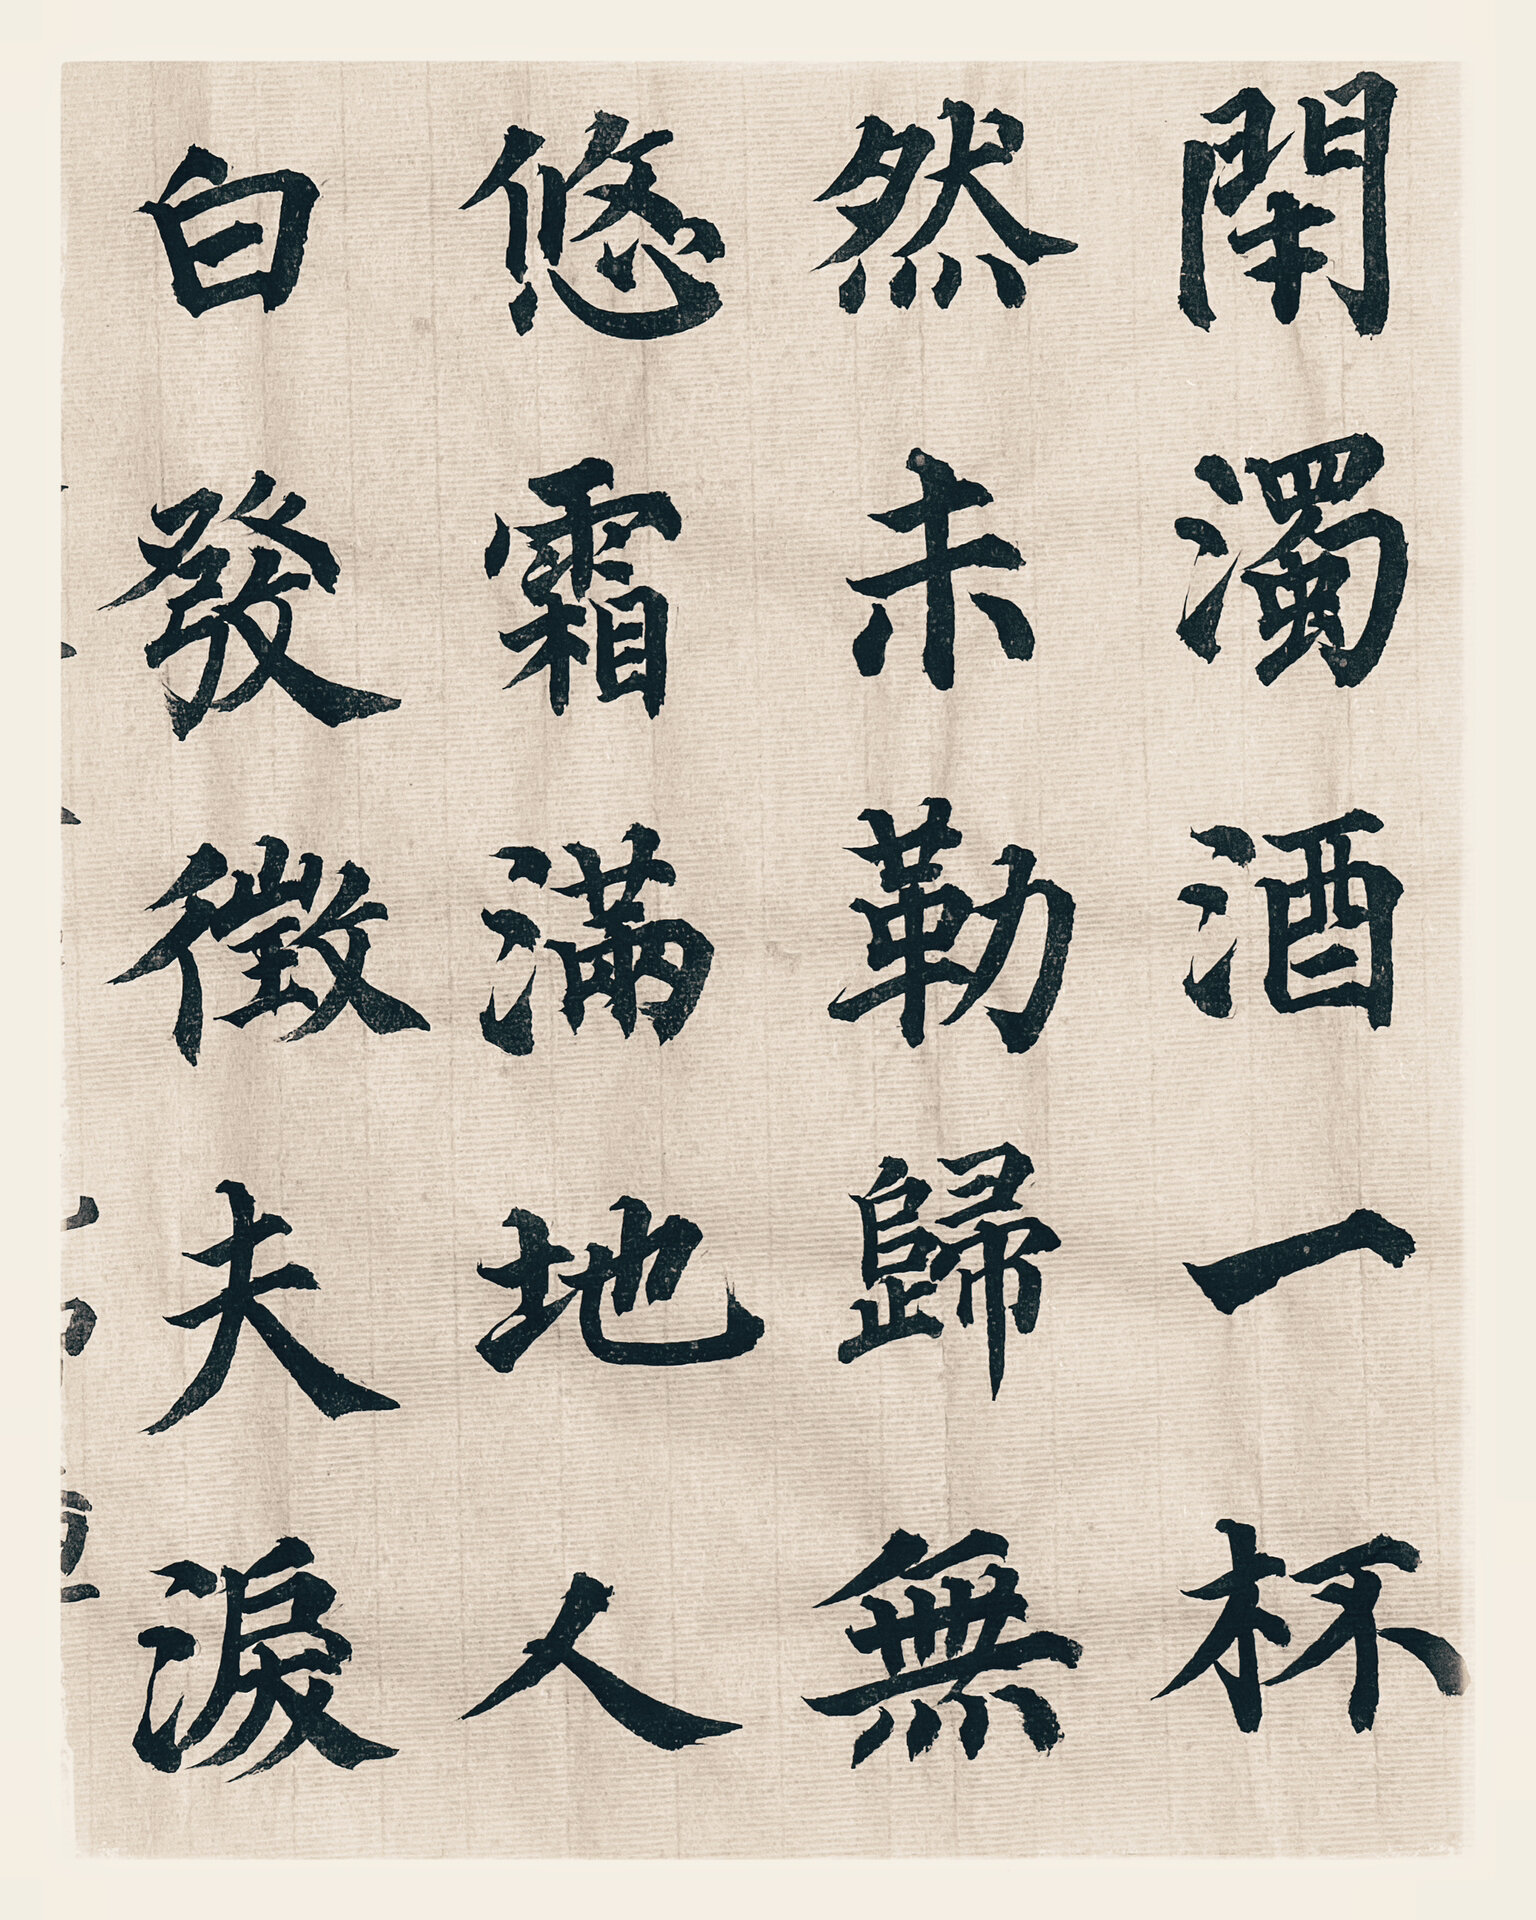 閉濁酒一杯
然未勒歸無
悠霜滿地人
白發徵夫淚